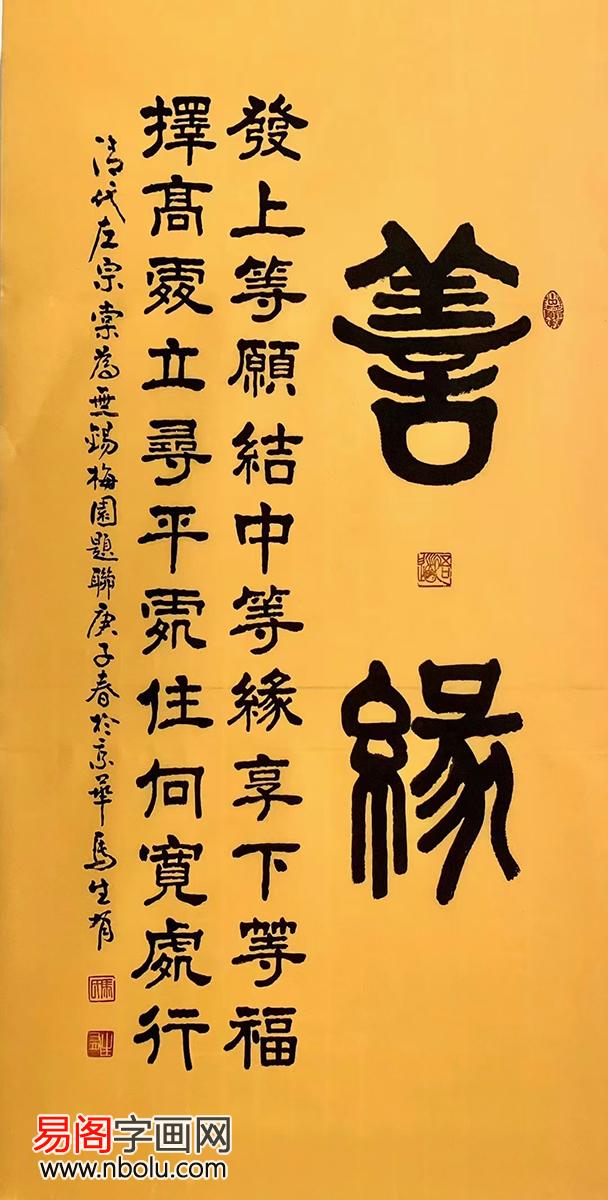 善緣
發上等願結中等緣享下等福
擇高處立尋平處住向寬處行
清代左宗棠為無錫梅園題聯庚子春於京華馬生有
易阁字画网
www.nbolu.com